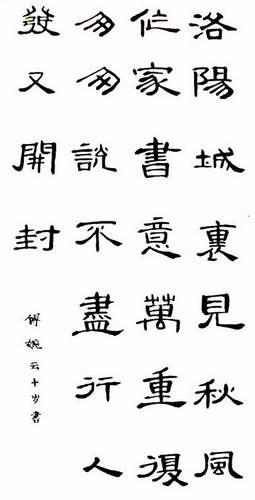 洛陽城裏見秋風
作家書意萬重復
匆匆說不盡行人
發又開封
傅婉云十岁書